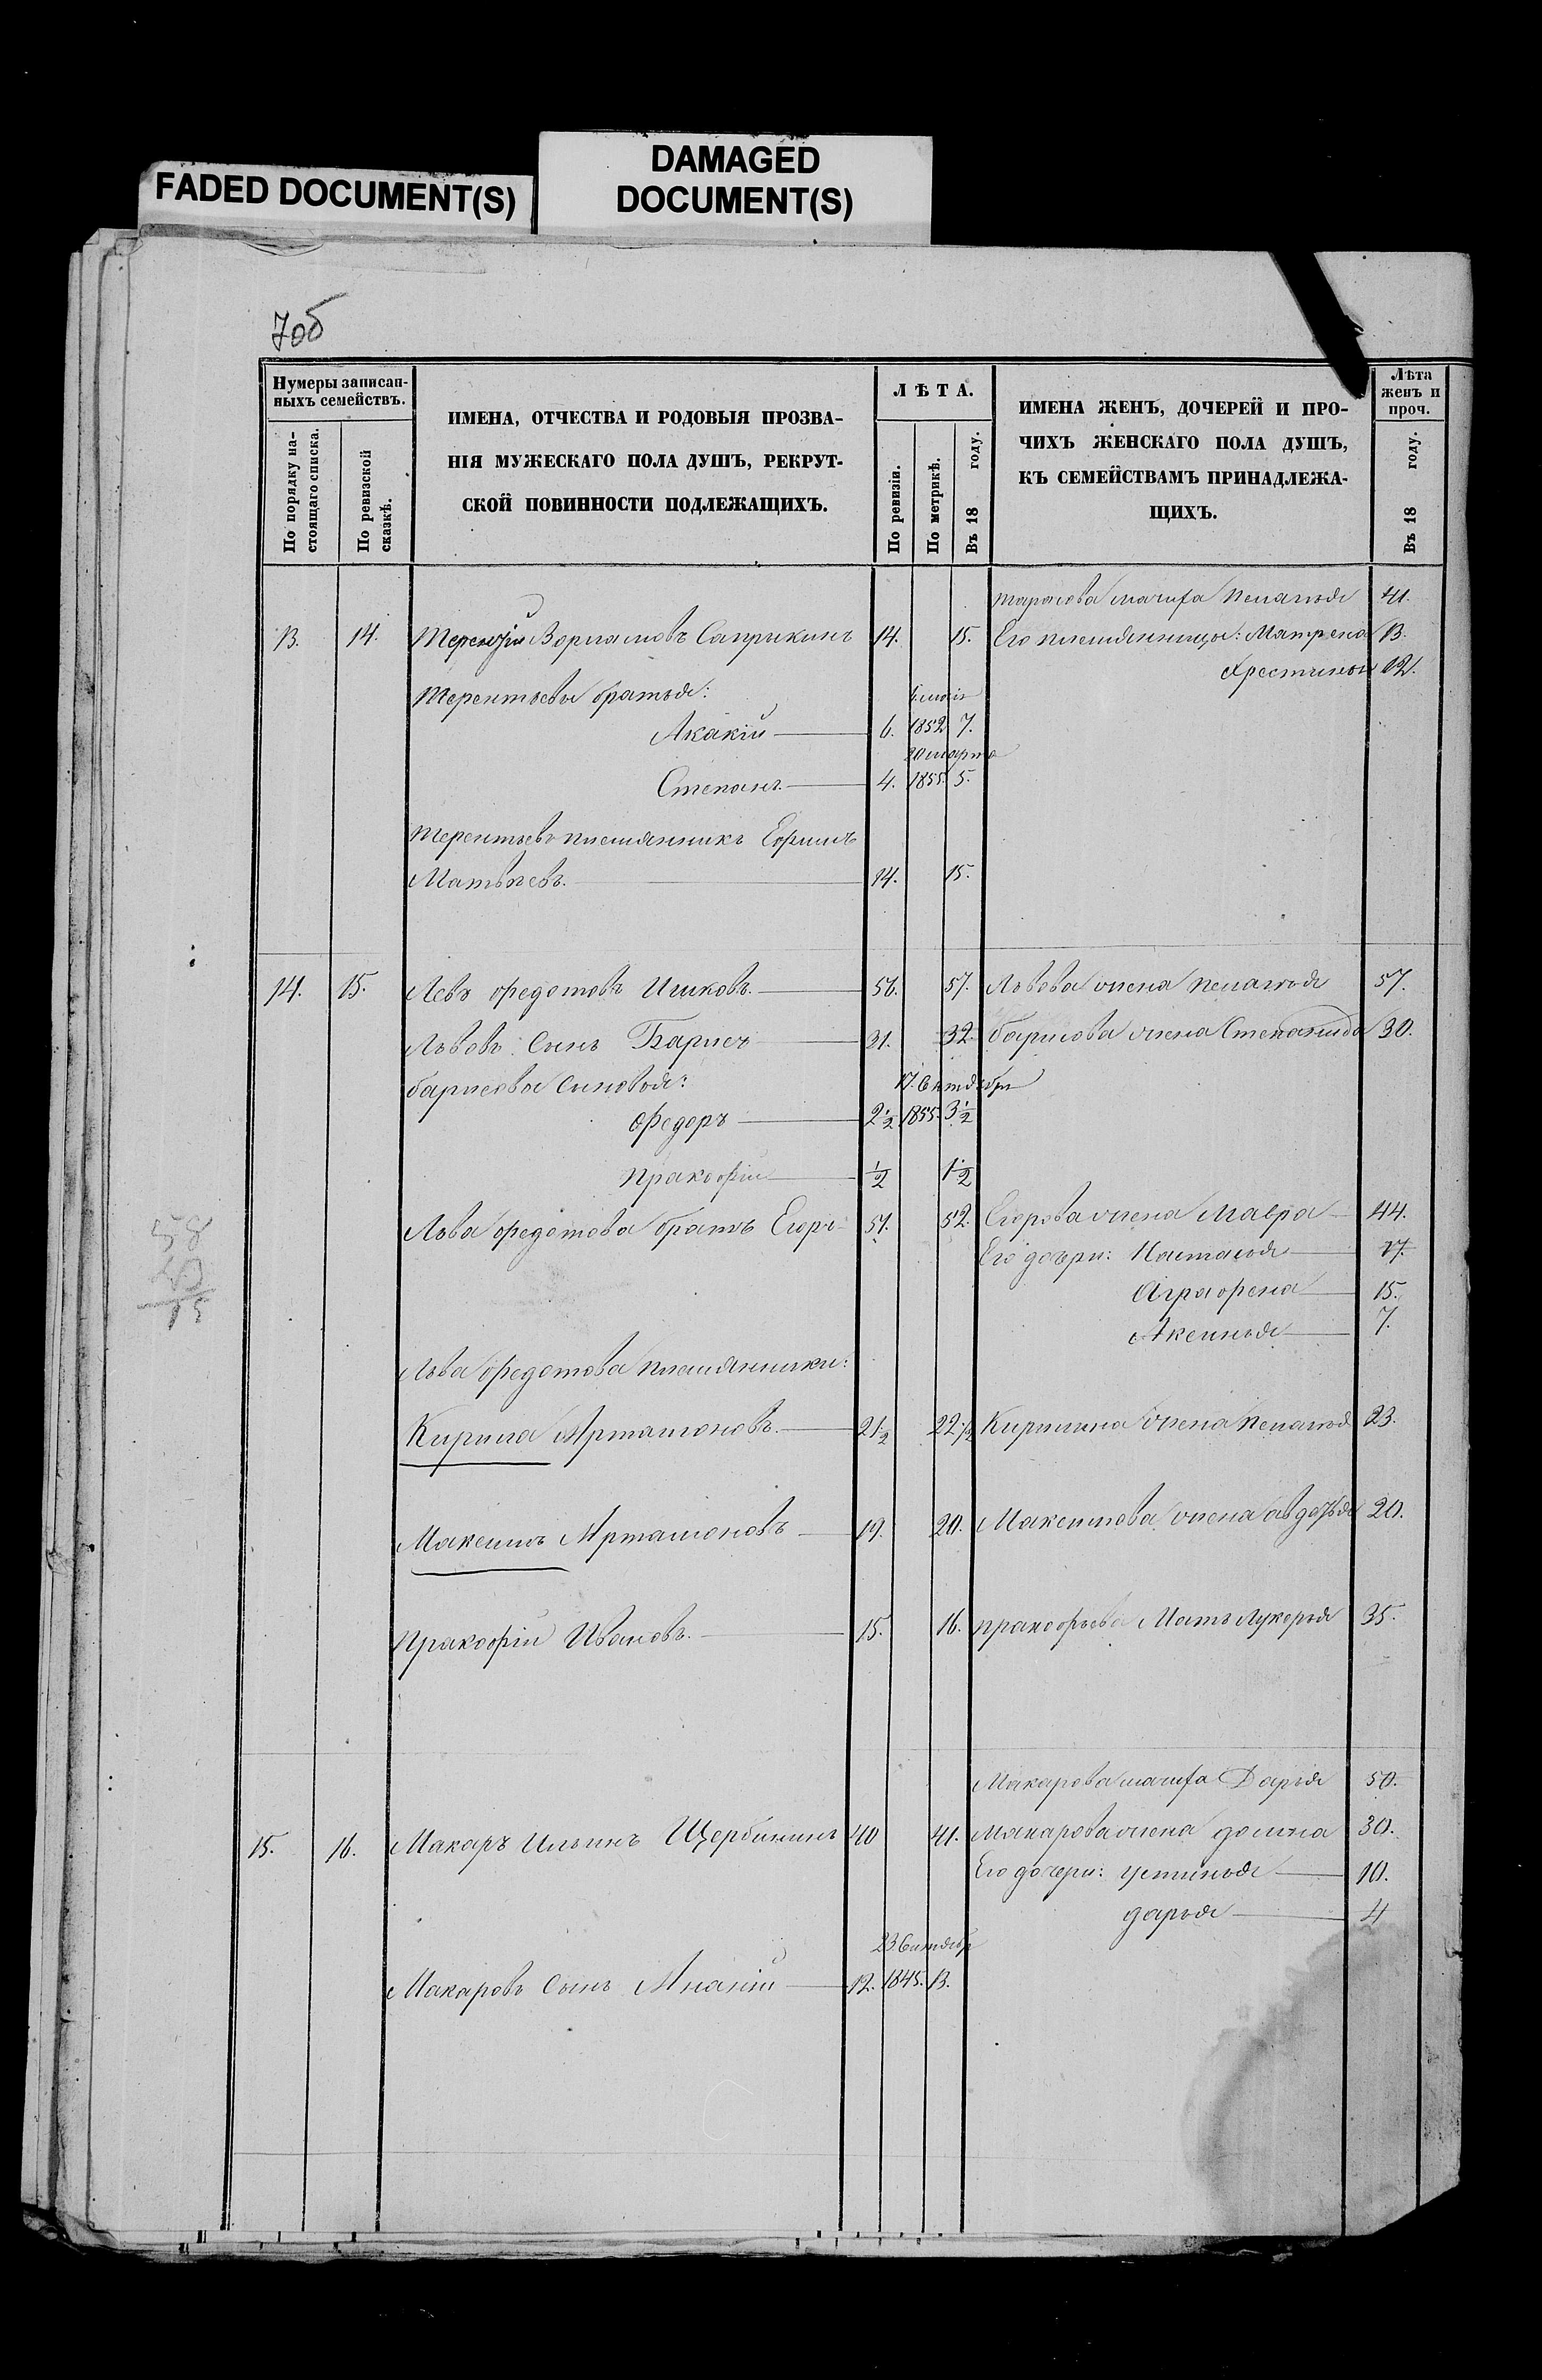 FADED DOCUMENT(S)
DAMAGED
DOCUMENT(S)
7об
Нумеры записан-
ныхъ семействъ.
По порядку на-
стоящаго списка.
По ревизской
сказкѣ.
ИМЕНА, ОТЧЕСТВА И РОДОВЫЯ ПРОЗВА-
НІЯ МУЖЕСКАГО ПОЛА ДУШЪ, РЕКРУТ-
СКОЙ ПОВИННОСТИ ПОДЛЕЖАЩИХЪ.
ЛѢТА.
По ревизіи.
По метрикѣ.
Въ 18 году.
ИМЕНА ЖЕНЪ, ДОЧЕРЕЙ И ПРО-
ЧИХЪ ЖЕНСКАГО ПОЛА ДУШЪ,
КЪ СЕМЕЙСТВАМЪ ПРИНАДЛЕЖА-
ЩИХЪ.
Лѣта
женъ и
проч.
Въ 18 году.
тарасова мачиха Пелагья 41.
13. 14. Терентій Сапрыкинъ 14. 15. Его племянницы: Матрена 13.
Хрестинья 12.
Терентьевы братья:
Акакій 6. 1852 7.
20 марта
Степанъ 4. 1855. 5.
Терентьевъ племянникъ Ефримъ
Матвѣевъ. 14. 15.
14. 15. Левъ Федотовъ Ишковъ. 56. 57. Львова жена Пелагья 57.
Львовъ Сынъ Барисъ 31. 32. барисова жена Степанида 30.
барисова Сыновья: 17. Октября
Федоръ 2½ 1855. 3½
Пракофій ½ 1½
Льва Федотова братъ Егоръ 51. 52. Егорова жена Мавра 44.
Его дочери: Насталья 17.
Аграфена 15.
Аксинья 7.
Льва Федотова племянники:
Кирила Артамоновъ. 21½ 22½ Кирилина жена Пелагья 23.
Максимъ Артамоновъ 19. 20. Максимова жена авдотья 20.
Пракофій Ивановъ. 15. 16. пракофьева Мать Лукерья 35.
Макарова мачиха Дарья 50.
15. 16. Макаръ Ильинъ Щербининъ 40 41. Макарова жена домна 30.
Его дочери: устинья 10.
дарья 4
23. Октябр
Макаровъ Сынъ Ананій 12. 1845. 13.
58